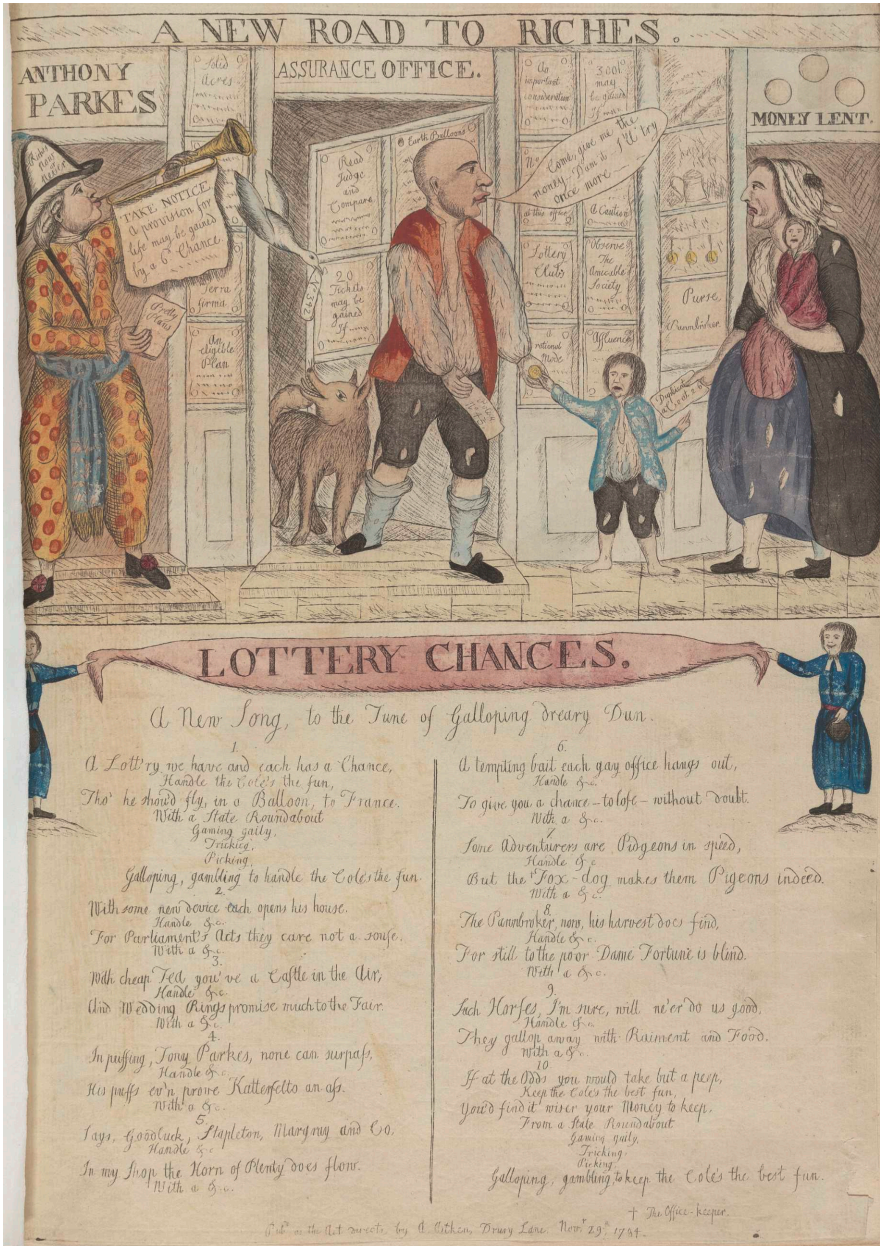 A NEW ROAD TO RICHES.
ANTHONY
PARKES
Solid
Acres
ASSURANCE OFFICE.
An
important
consideration
300l.
may
be gained
If
MONEY LENT.
TAKE NOTICE
a provision for
life may be gained
by a 6d Chance
Terra
firma
An
eligible
Plan
Read
Judge
and
Compare
Earth Balloons
20
Tickets
may be
gained
If
Come, give me the
money, D—n it I'll try
once more
at this office
A Caution
Lottery
Clubs
Observe
The
Amicable
Society
A
rational
Mode
Affluence
Purse
Pawnbroker
LOTTERY CHANCES.
A New Song, to the Tune of Galloping dreary Dun.
1.
A Lott'ry we have and each has a Chance,
Handle the Cole's the fun,
Tho' he should fly, in a Balloon, to France.
With a State Roundabout
Gaming gaily,
Tricking,
Picking,
Galloping, gambling to handle the Cole's the fun.
2.
With some new device each opens his house.
Handle &c.
For Parliament's Acts they care not a souse.
With a &c.
3.
With cheap Tea you've a Castle in the Air,
Handle &c.
And Wedding Rings promise much to the Fair
With a &c.
4.
In puffing, Tony Parkes, none can surpass,
Handle &c.
His puffs ev'n prove Katterfelto an ass.
With a &c.
5.
Says, Goodluck, Stapleton, Margray and Co.
Handle &c
In my Shop the Horn of Plenty does flow.
With a &c.
6.
A tempting bait each gay office hangs out,
Handle &c.
To give you a chance – to lose – without doubt.
With a &c.
7
Some Adventurers are Pidgeons in speed,
Handle &c
But the † Fox-dog makes them Pigeons indeed.
With a &c.
8.
The Pawnbroker, now, his harvest does find,
Handle &c.
For still to the poor Dame Fortune is blind.
With a &c.
9.
Such Horses, I'm sure, will ne'er do us good,
Handle &c.
They gallop away with Raiment and Food.
With a &c.
10
If at the Odds you would take but a peep,
Keep the Cole's the best fun,
You'd find it wiser your Money to keep,
From a State Roundabout
Gaming gaily,
Tricking,
Picking,
Galloping, gambling to keep the Cole's the best fun.
† The Office-keeper.
Pubd. as the Act directs, by A. Aitken, Drury Lane. Novr. 29th. 1784.